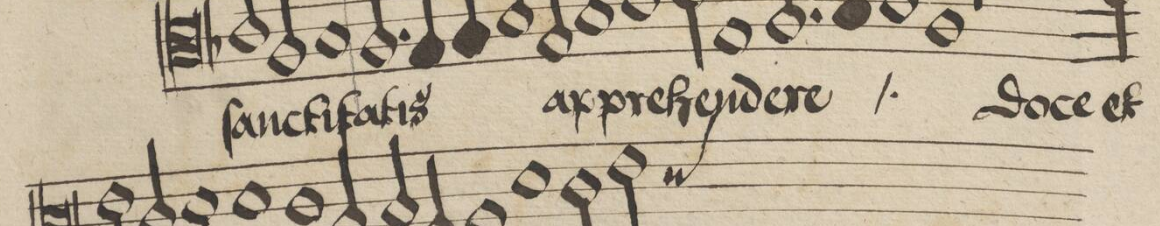 sanctitatis apprehendere /. Doce et